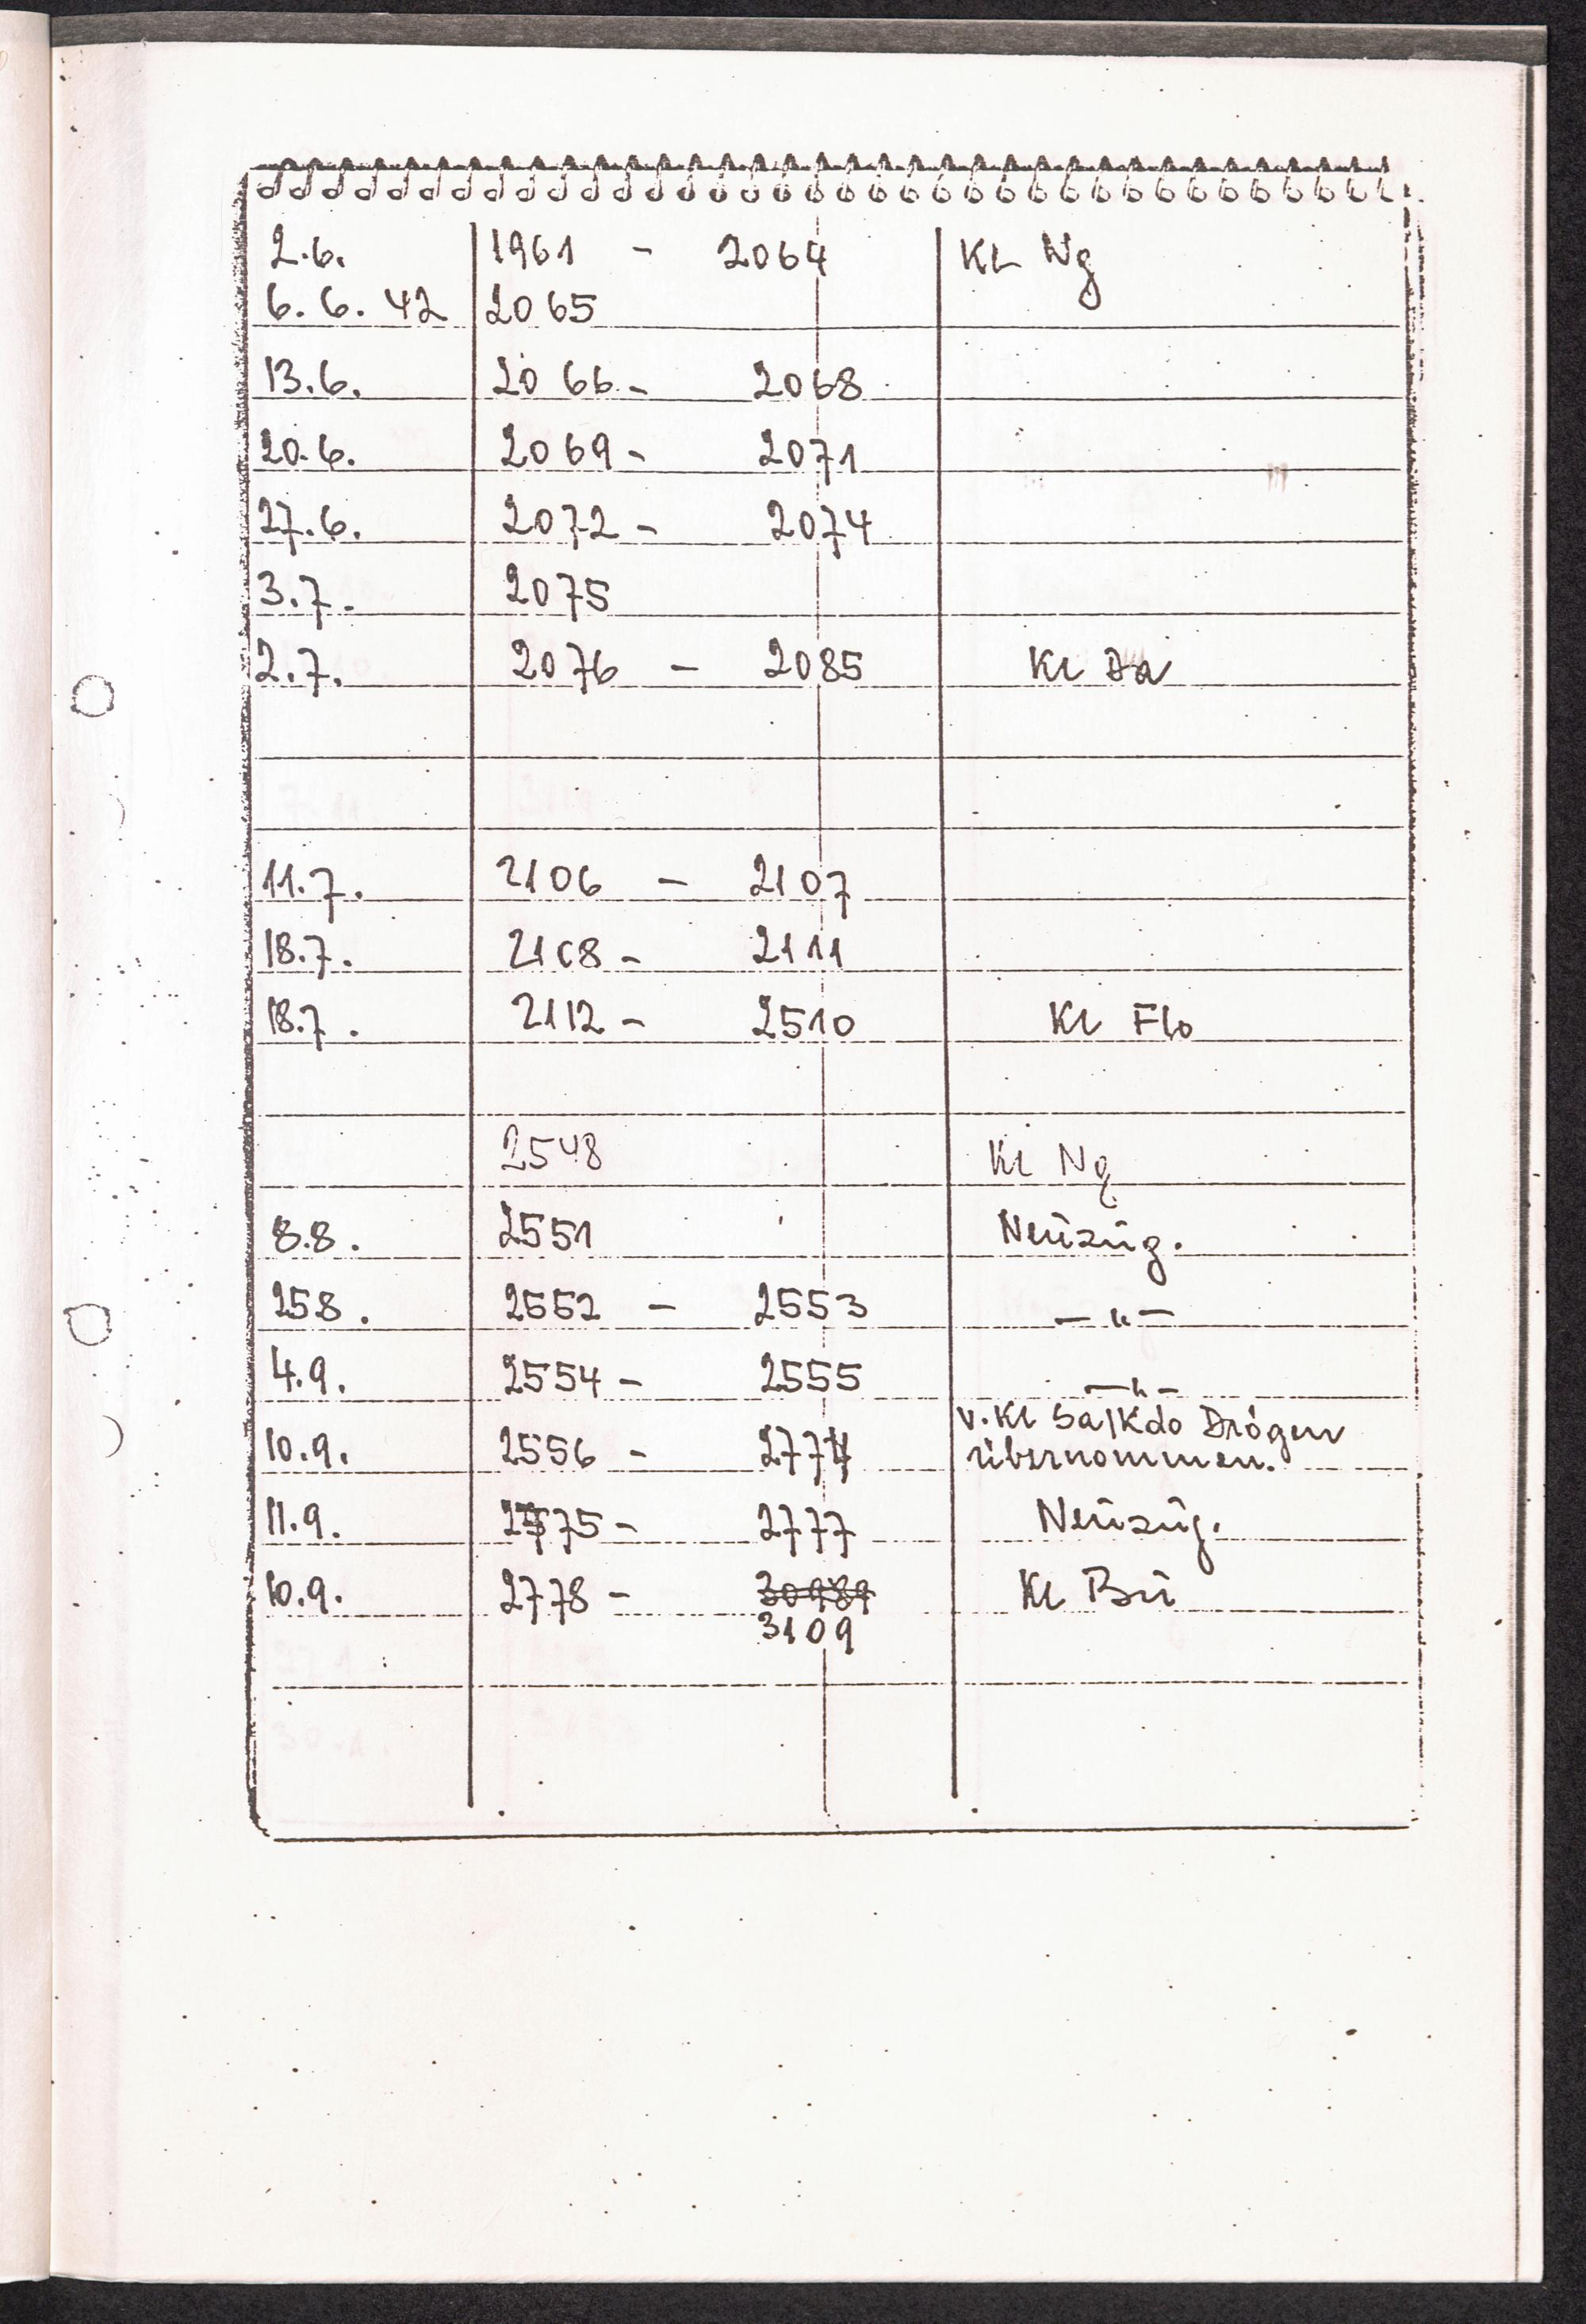 2.6. 1961 - 2064 KL Ng
6.6.42 2065
13.6. 2066 - 2068
20.6. 2069 - 2071
27.6. 2072 - 2074
3.7. 2075
2.7. 2076 - 2085 KL Da
11.7. 2106 - 2107
18.7. 2108 - 2111
18.7. 2112 - 2510 KL Flo
2548 KL Ng
8.8. 2551 Neuzug.
25.8. 2552 - 2553 — " —
4.9. 2554 - 2555 — " —
v. KL Sa/Kdo Drögen
10.9. 2556 - 2774 übernommen.
11.9. 2775 - 2777 Neuzug.
10.9. 2778 - KL Bu
3109